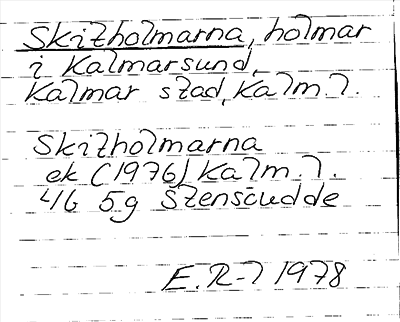 Skitholmarna, holmar
i Kalmarsund,
Kalmar stad, Kalm.l.
Skitholmarna
ek (1976) Kalm.l.
4G 5g Stensudde
E.R-l 1978